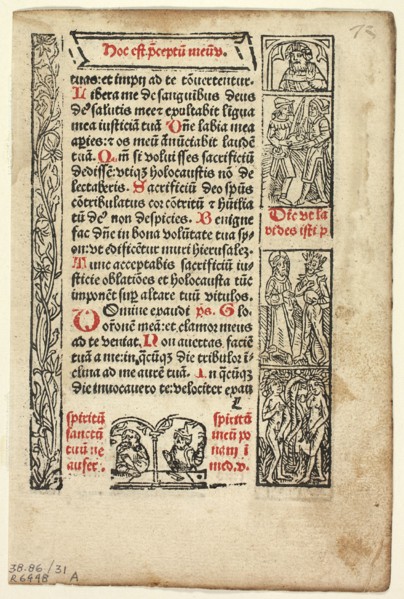 Hoc est p̄ceptū meūv.
tuas: et impij ad te cōuertentur.
Libera me de sanguibus deus
deꝰ salutis mee: et exultabit ligua
mea iusticiā tuā Dn̄e labia mea
apies: ⁊ os meū ānūciabit laudē
tuā. Qm̄ si voluisses sacrificiū
dedissē: vtiqꝫ holocaustis nō de
lectaberis. Sacrificiū deo spūs
cōtribulatus cor cōtritū ⁊ hūilia
tū deꝰ non despicies. Benigne
fac dn̄e in bona volūtate tua sy-
on: vt edificētur muri hierusalez.
Tunc acceptabis sacrificiū iu-
sticie oblatiōes et holocausta tūc
imponēt sup altare tuū vitulos.
Domine exaudi ps. Glo.
orōnē meā: et clamor meus
ad te veniat. Non auertas faciē
tuā a me: in q̄cūqꝫ die tribulor ī-
clina ad me aurē tuā. In q̄cūqꝫ
die inuocauero te: velociter exau
Dic vt la
pides isti p
spiritū
sanctū
tuū ne
aufer.
spiritū
meū po
nam ī
med.v.
38.86./31
R6448 A